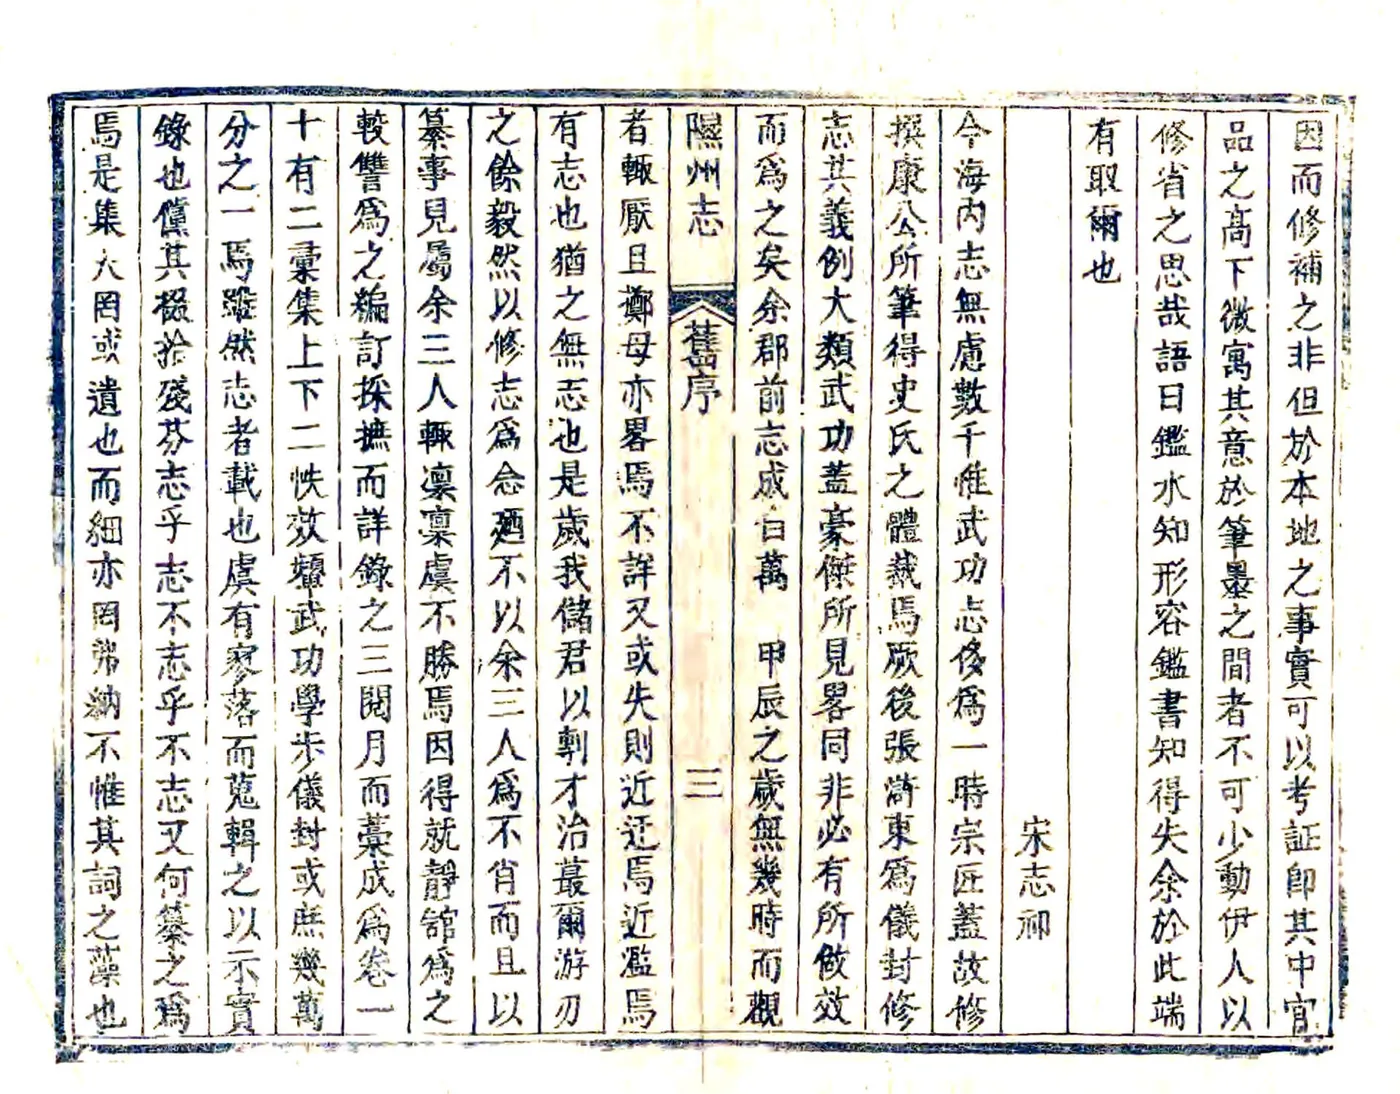 因而修補之非但於本地之事實可以考証即其中官
品之高下微寓其意於筆墨之間者不可少動伊人以
修省之思哉語曰鑑水知形容鑑書知得失余於此端
有取爾也
宋志祁
今海內志無慮數千惟武功志侈為一時宗匠蓋故修
撰康公所筆得史氏之體裁焉厥後張滸東為儀封修
志其義例大類武功蓋豪傑所見畧同非必有所倣效
而為之矣余郡前志成白萬 甲辰之歲無幾時而觀
隰州志 舊序 三
者輒厭且薌母亦畧焉不詳又或失則近迂焉近濫焉
有志也猶之無志也是歲我儲君以剸才治蕞爾游刃
之餘毅然以修志為念廼不以余三人為不肖而且以
纂事見屬余三人輒凛凛虞不勝焉因得就靜舘為之
較讐為之編訂採摭而詳錄之三閱月而藁成為卷一
十有二彙集上下二帙效顰武功學步儀封或庶幾萬
分之一焉雖然志者載也虞有寥落而蒐輯之以示實
錄也儻其掇拾殘芬志乎志不志乎不志又何纂之為
焉是集大罔或遺也而細亦罔弗納不惟其詞之藻也